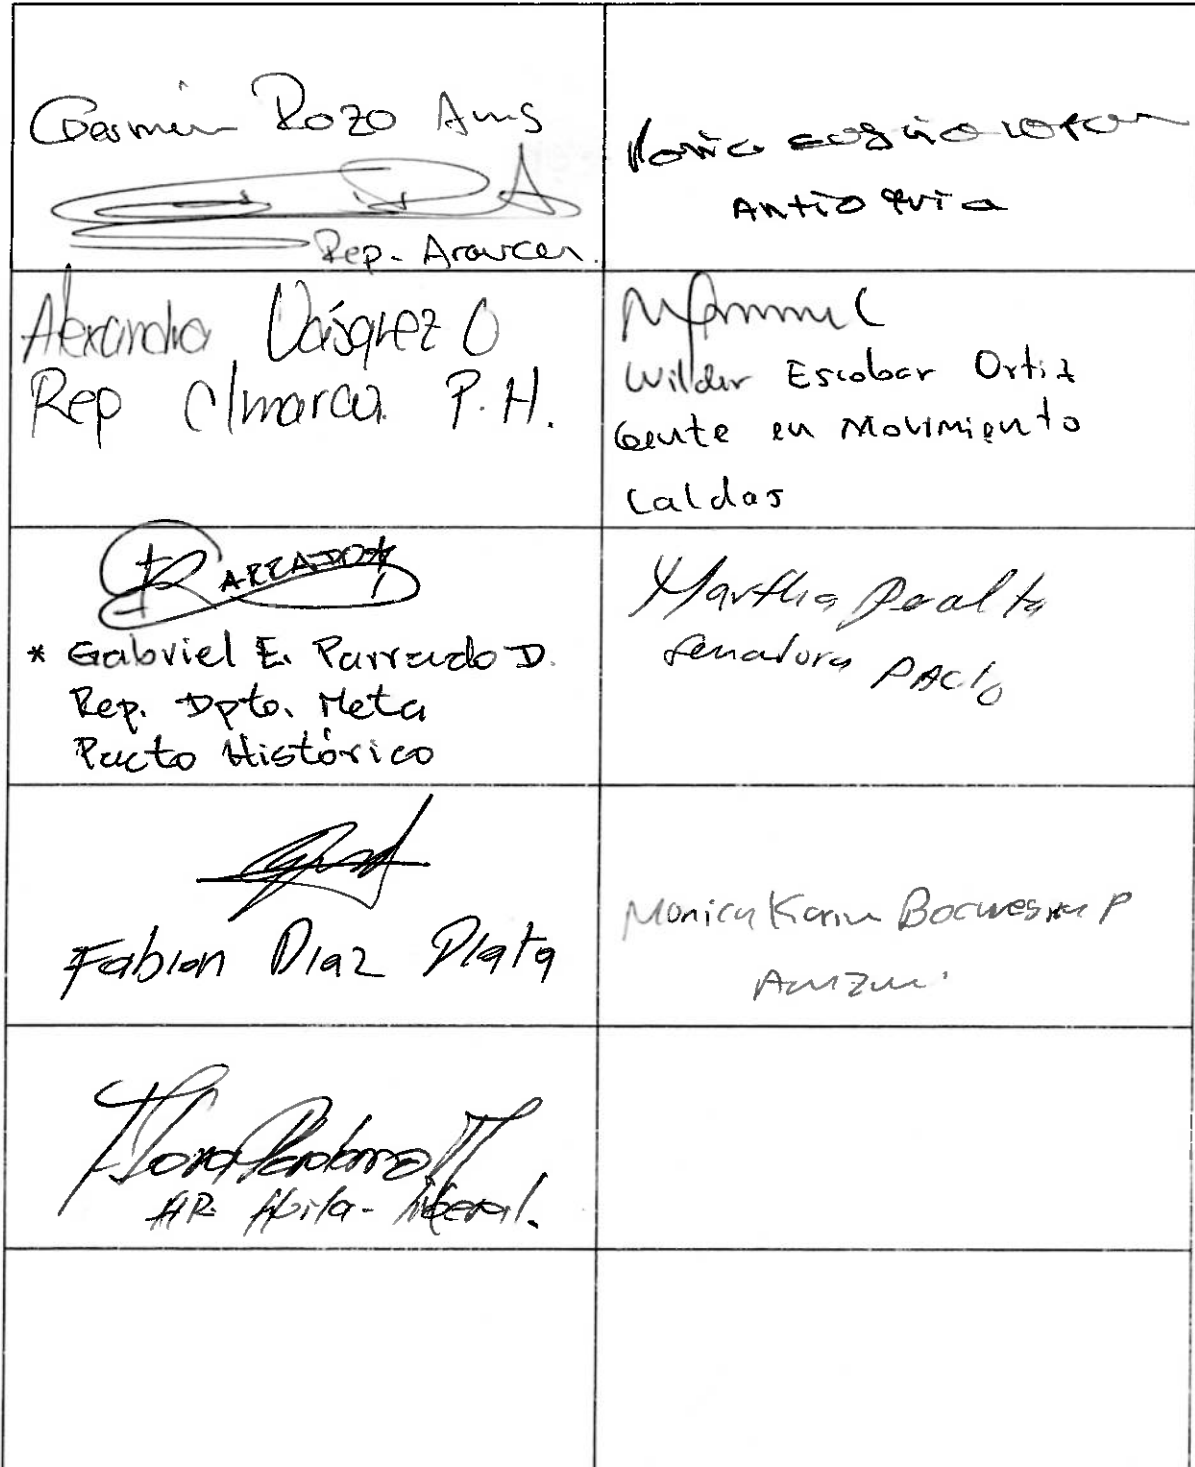 Germán Rozo Anís
Rep. Arauca.
María Eugenia Lopera
Antioquia
Alexandra Vásquez O
Rep C/marca P.H.
Wilder Escobar Ortiz
Gente en Movimiento
Caldas
PARRADO
* Gabriel E. Parrado D.
Rep. Dpto. Meta
Pacto Histórico
Martha Peralta
Senadora Pacto
Fabian Diaz Plata
Monica Karina Bocanegra P
Amazonas
Flora Perdomo
HR. Huila - liberal.